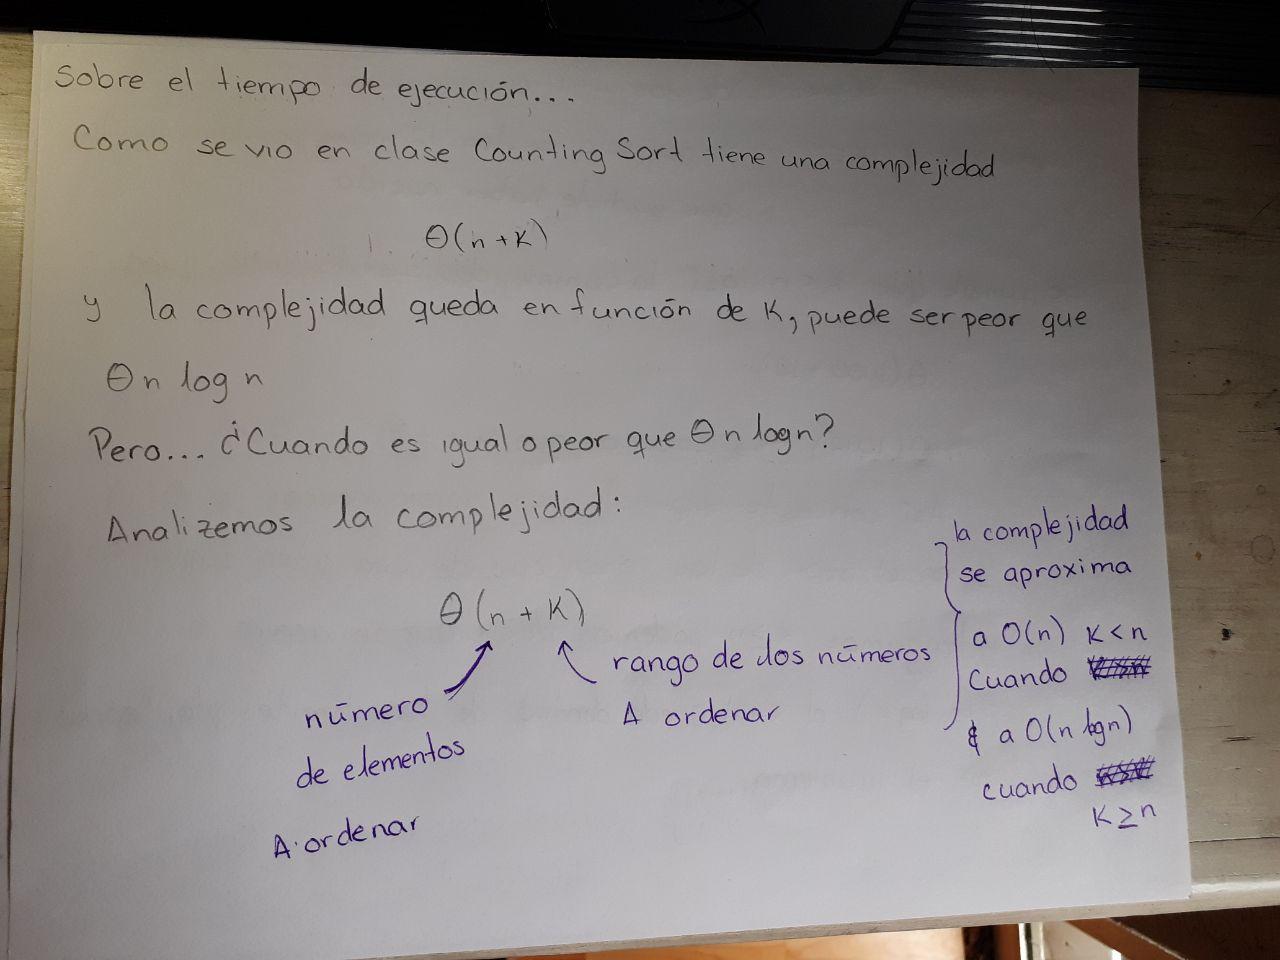 Sobre el tiempo de ejecución...
Como se vio en clase Counting Sort tiene una complejidad
Θ(n + K)
y la complejidad queda en función de K, puede ser peor que
Θ n log n
Pero... ¿Cuando es igual o peor que Θ n log n?
Analizemos la complejidad:
Θ (n + K)
número
de elementos
A ordenar
rango de los números
A ordenar
la complejidad
se aproxima
a O(n) K < n
Cuando
& a O(n lgn)
cuando
K ≥ n